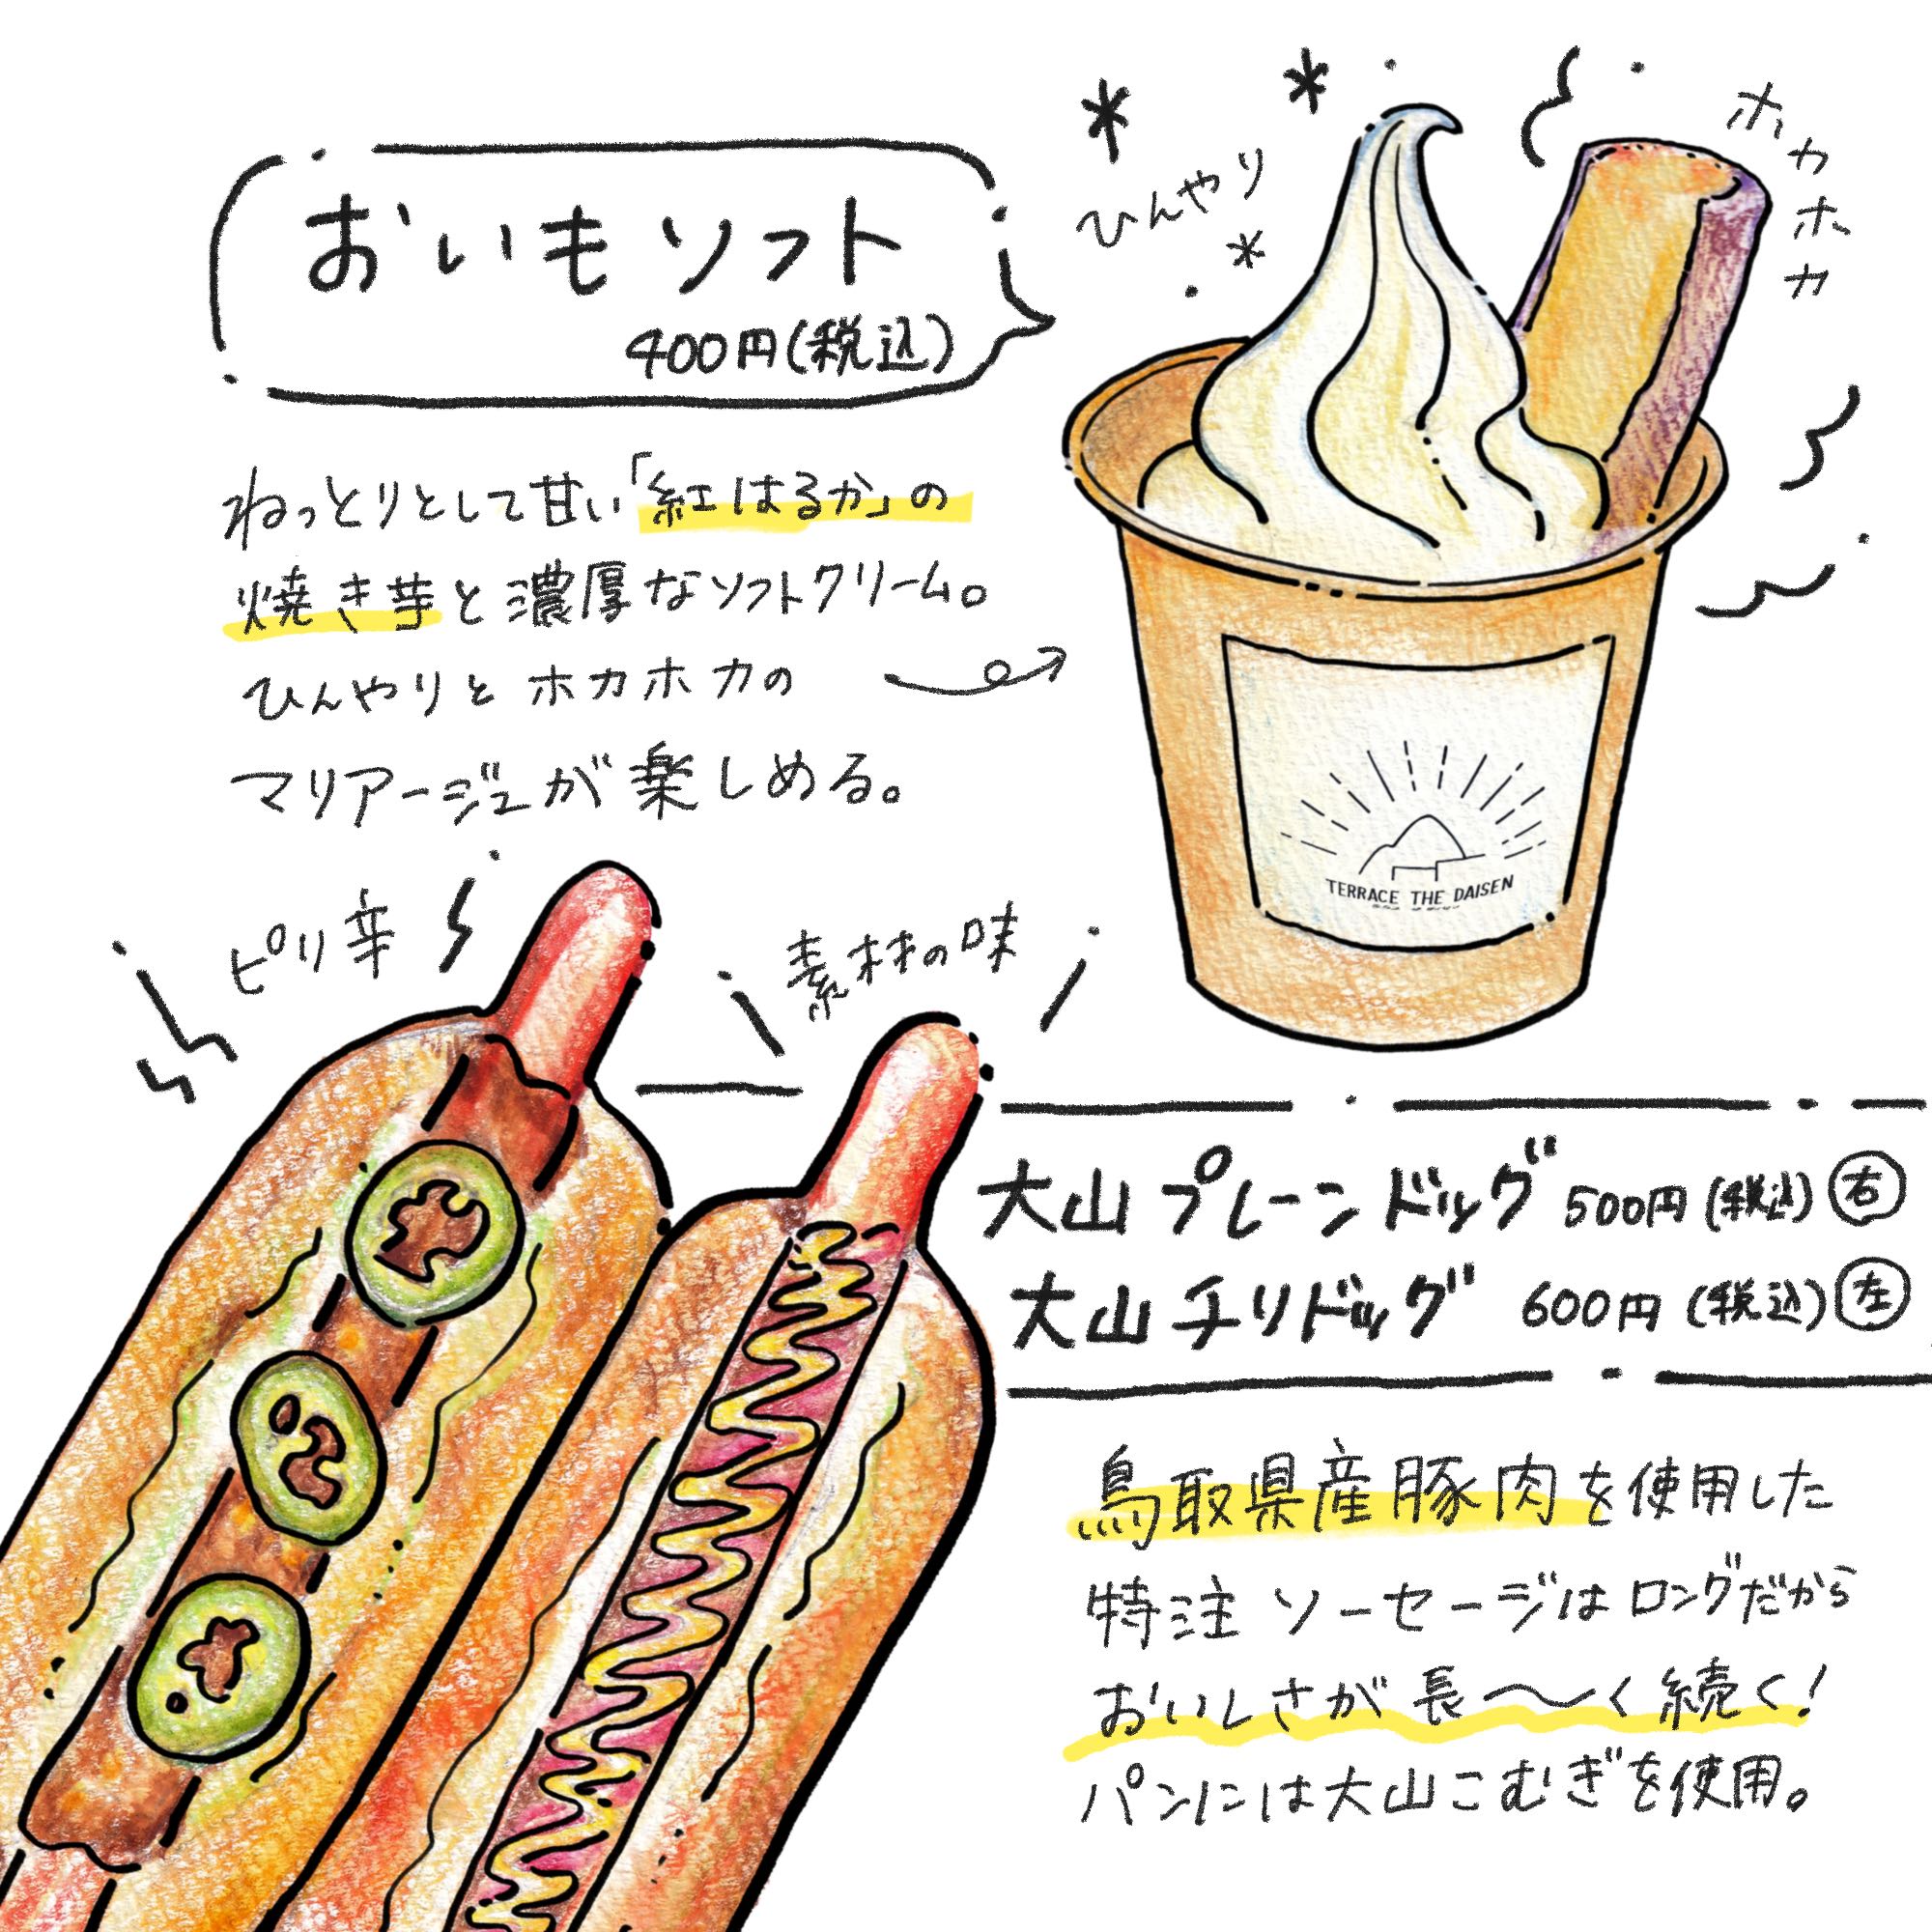 おいもソフト
400円(税込)
ひんやり
ホカホカ
ねっとりとして甘い「紅はるか」の
焼き芋と濃厚なソフトクリーム。
ひんやりとホカホカの
マリアージュが楽しめる。
TERRACE THE DAISEN
ピリ辛
素材の味
大山プレーンドッグ 500円(税込)右
大山チリドッグ 600円(税込)左
鳥取県産豚肉を使用した
特注ソーセージはロングだから
おいしさが長〜く続く!
パンには大山こむぎを使用。